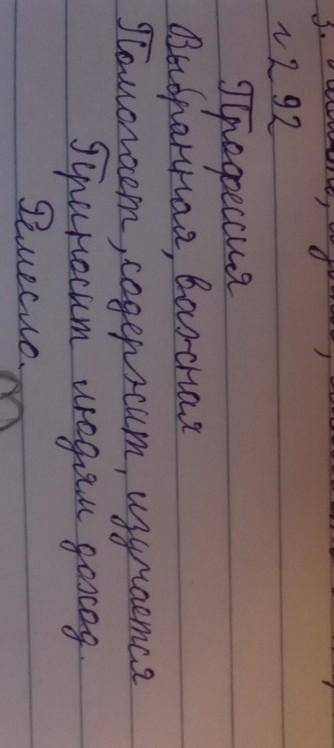 № 292
Профессия
Выбранная, важная
Помогает, содержит, изучается
Приносит людям доход.
Ремесло.